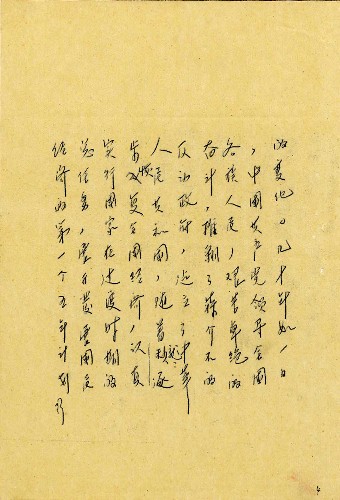 的变化。几十年如一日
，中国共产党领导全国
各族人民，艰苦卓绝的
奋斗，推翻了蒋介石的
反动政府，建立了中华
人民共和国，随着逐
步恢复全国经济，认真
实行国家在过渡时期的
总任务，发展国民
经济的第一个五年计划所